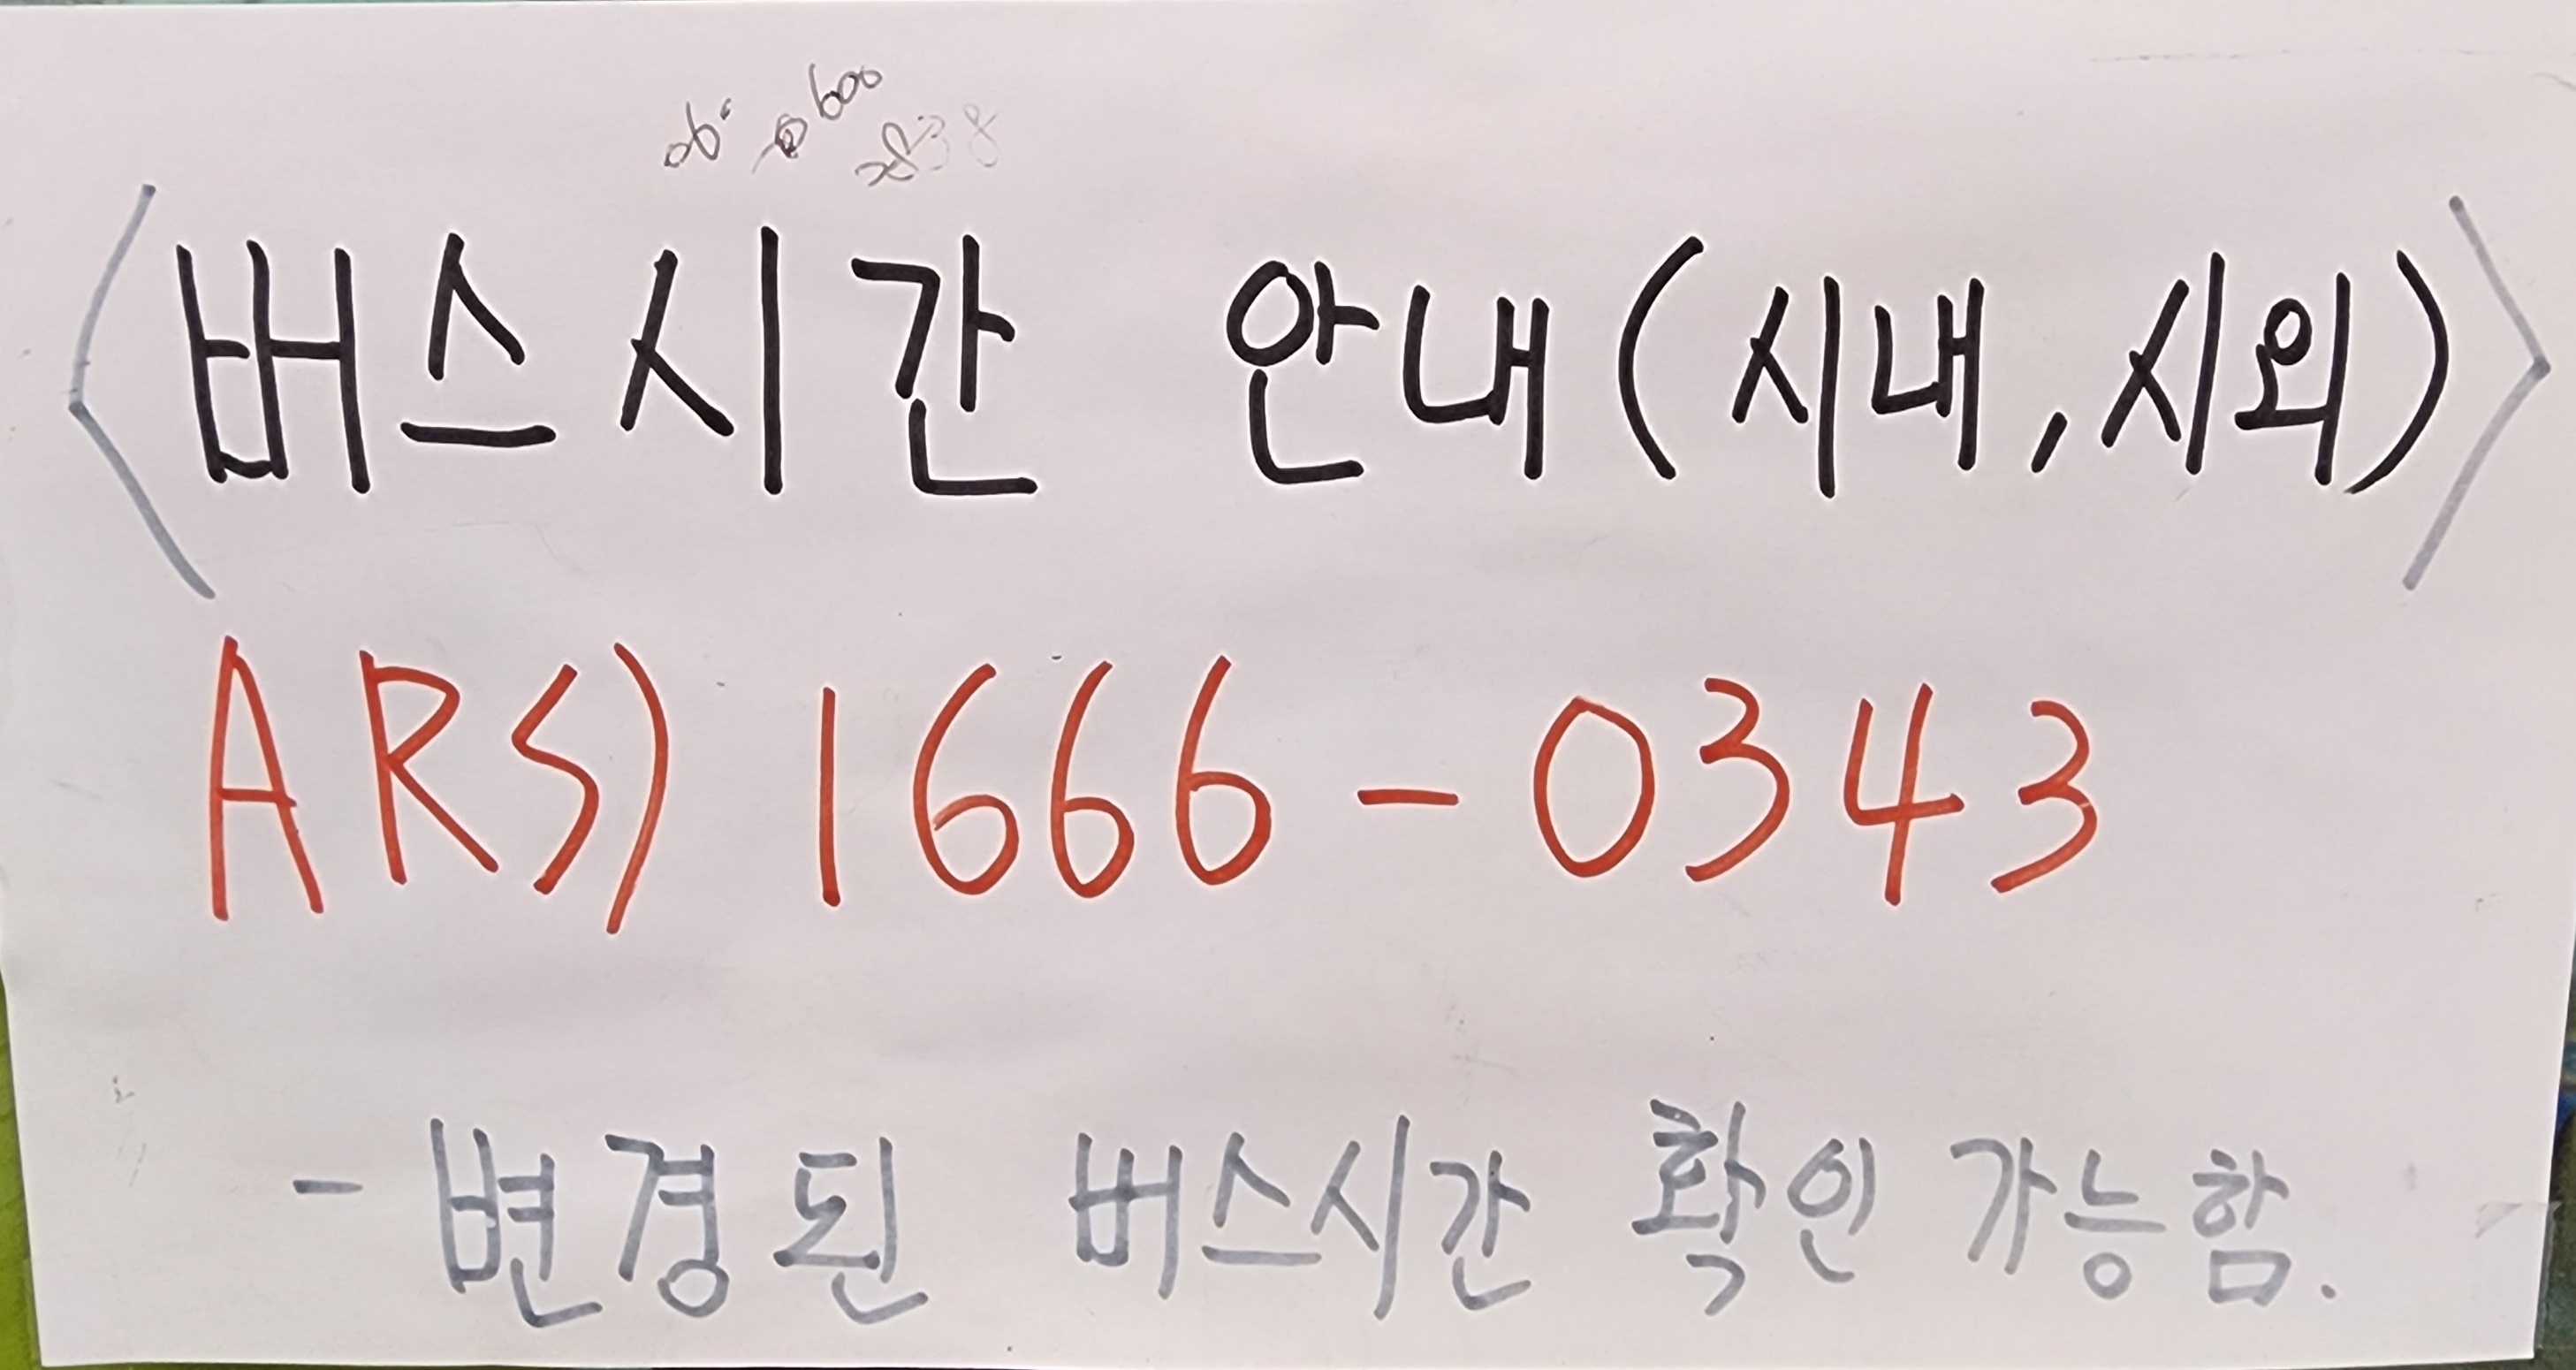 〈버스시간 안내(시내,시외)〉
ARS) 1666-0343
- 변경된 버스시간 확인 가능함.